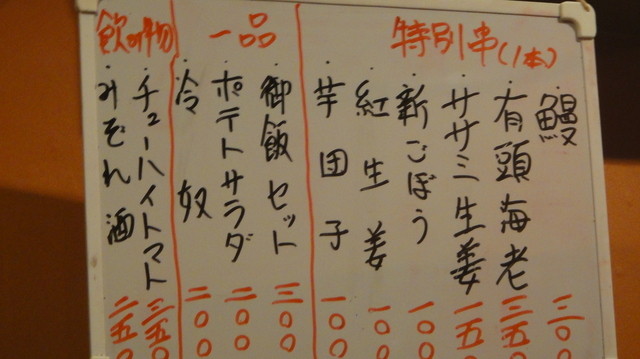 特別串(1本)
・鰻 三〇〇
・有頭海老 三五〇
・ササミ生姜 一五〇
・新ごぼう 一〇〇
・紅生姜 一〇〇
・芋団子 一〇〇
一品
・御飯セット 三〇〇
・ポテトサラダ 二〇〇
・冷奴 二〇〇
飲み物
・チューハイトマト 三五〇
・みぞれ酒 二五〇